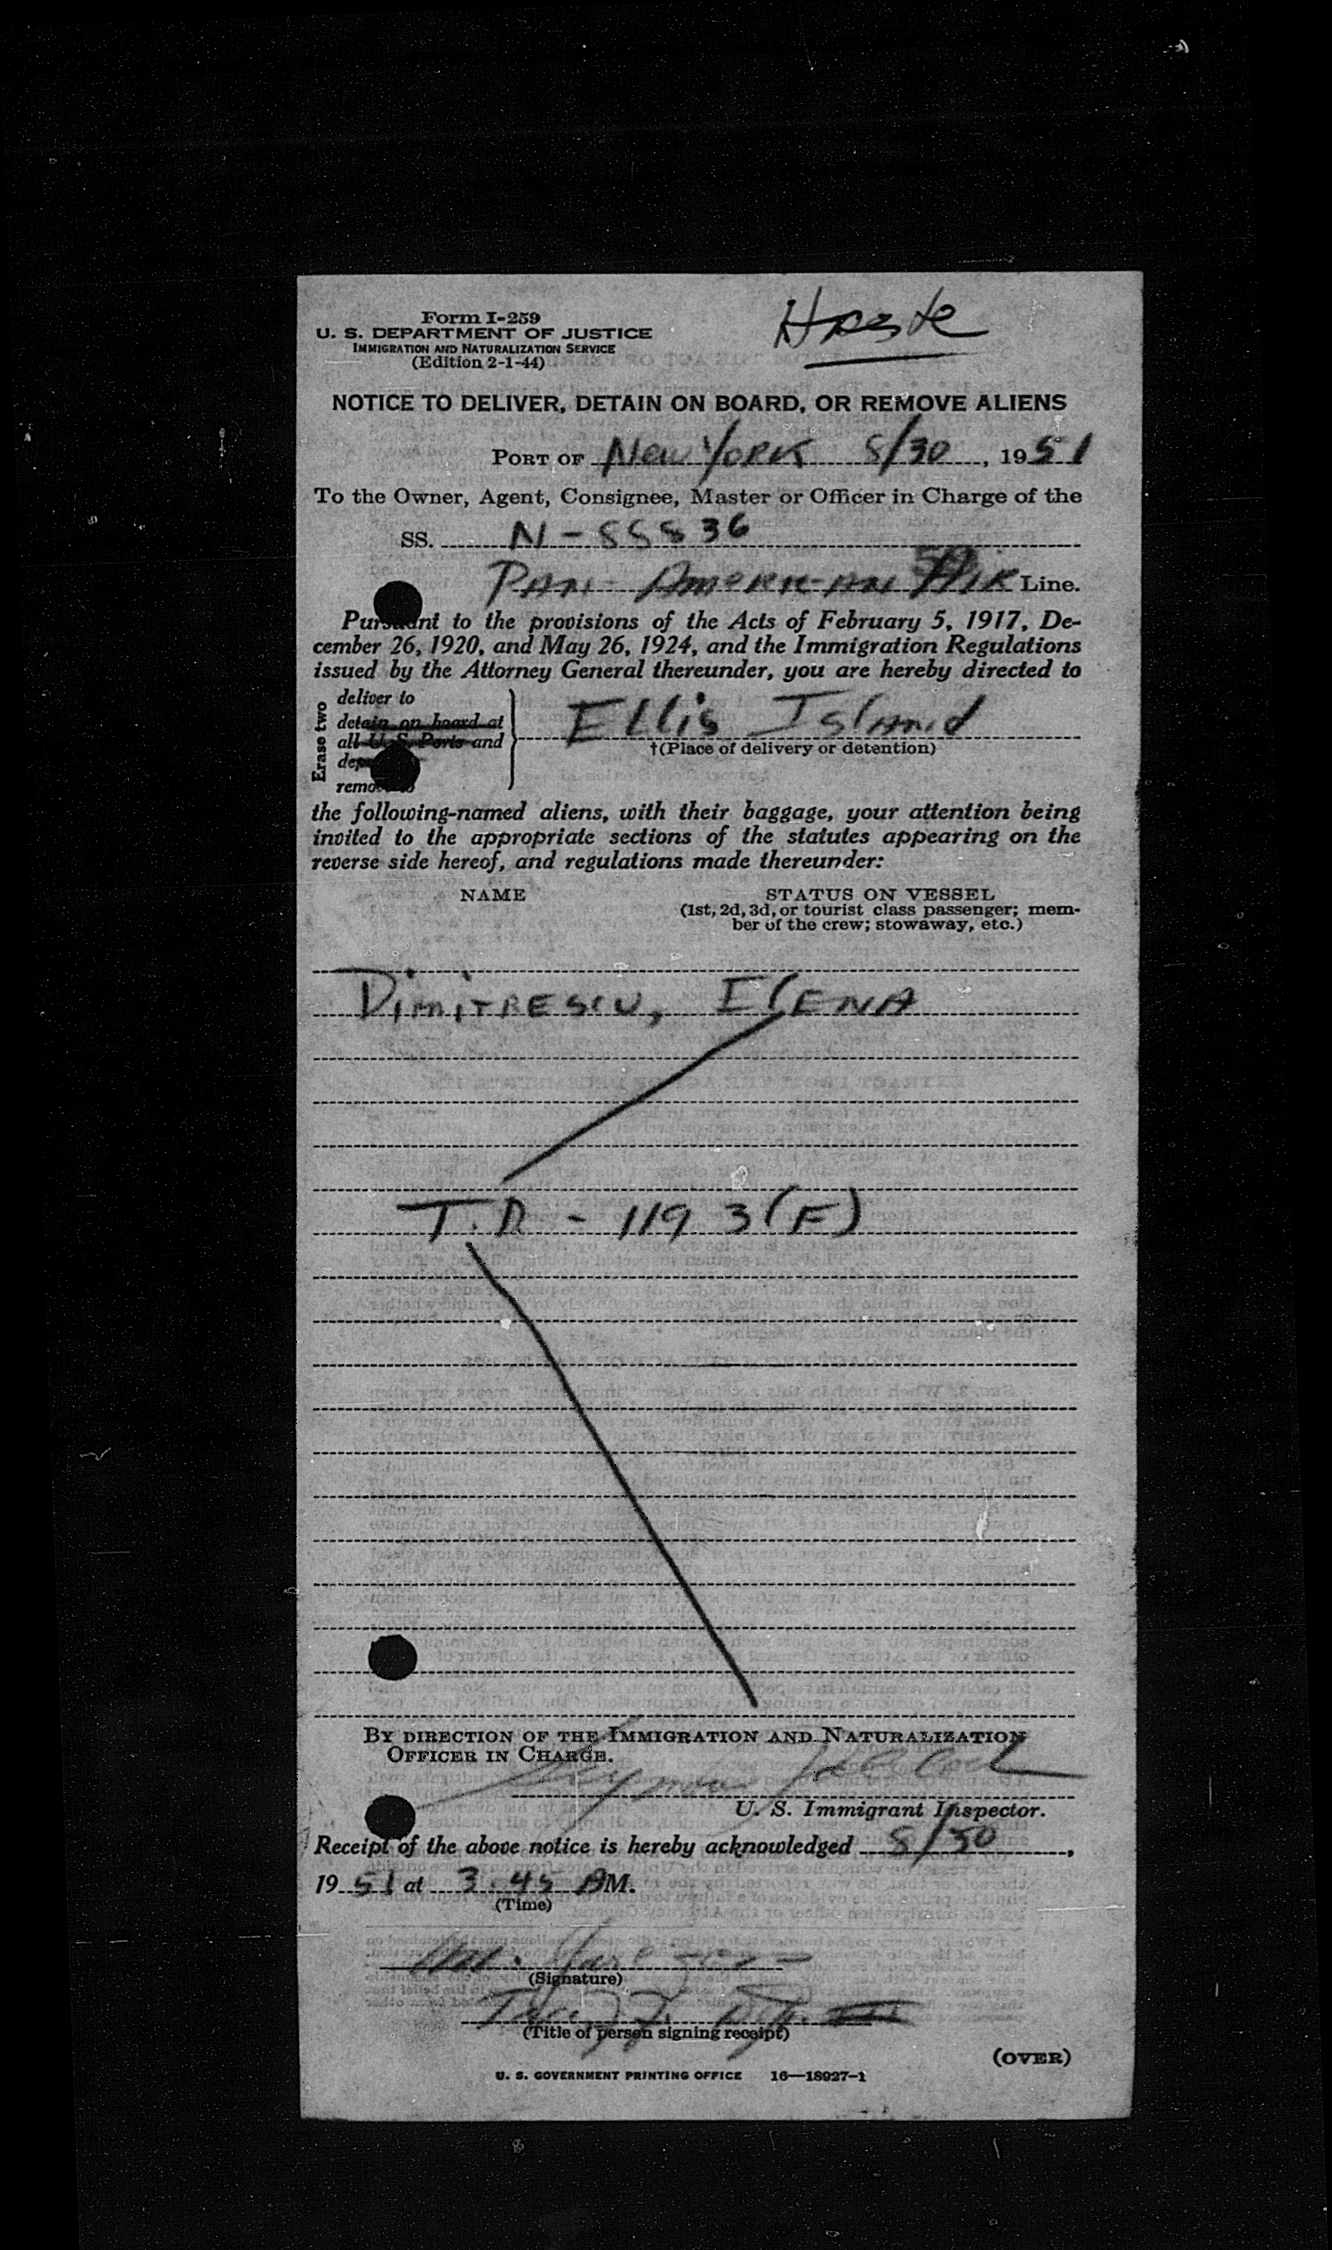 Form I-259
U. S. DEPARTMENT OF JUSTICE
IMMIGRATION AND NATURALIZATION SERVICE
(Edition 2-1-44)
NOTICE TO DELIVER, DETAIN ON BOARD, OR REMOVE ALIENS
PORT OF New York 8/30, 1951
To the Owner, Agent, Consignee, Master or Officer in Charge of the
SS. N-88836
PAN AMERICAN AIR Line.
Pursuant to the provisions of the Acts of February 5, 1917, De-
cember 26, 1920, and May 26, 1924, and the Immigration Regulations
issued by the Attorney General thereunder, you are hereby directed to
Erase two
deliver to
detain on board at
all U. S. Ports and
remove to
Ellis Island
†(Place of delivery or detention)
the following-named aliens, with their baggage, your attention being
invited to the appropriate sections of the statutes appearing on the
reverse side hereof, and regulations made thereunder:
NAME STATUS ON VESSEL
(1st, 2d, 3d, or tourist class passenger; mem-
ber of the crew; stowaway, etc.)
DimiTRESCU, IlENA
T.D - 119 3(F)
BY DIRECTION OF THE IMMIGRATION AND NATURALIZATION
OFFICER IN CHARGE.
U. S. Immigrant Inspector.
Receipt of the above notice is hereby acknowledged 8/30,
1951 at 3.45 AM.
(Time)
M.
(Signature)
(Title of person signing receipt)
(OVER)
U. S. GOVERNMENT PRINTING OFFICE 16—18927-1